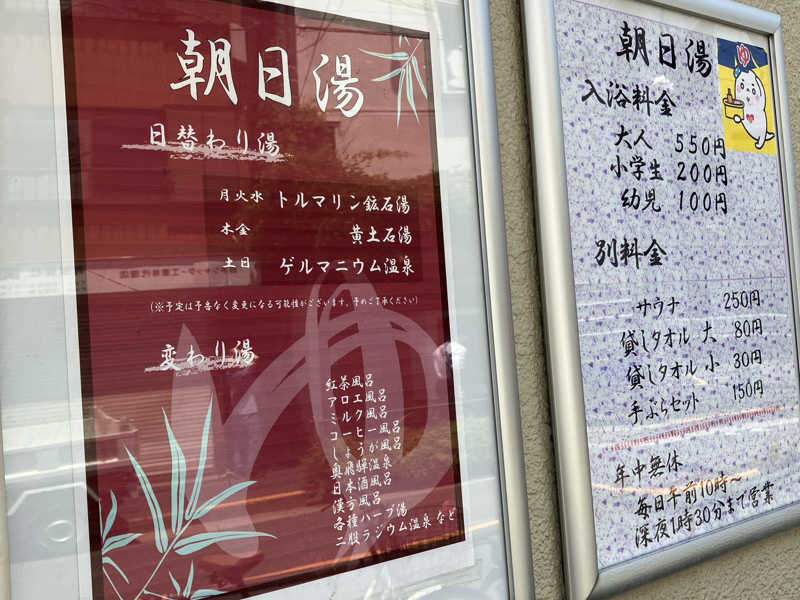 朝日湯
日替わり湯
月火水 トルマリン鉱石湯
木金 黄土石湯
土日 ゲルマニウム温泉
(※予定は予告なく変更になる可能性がございます。予めご了承ください)
変わり湯
紅茶風呂
アロエ風呂
ミルク風呂
コーヒー風呂
しょうが風呂
奥飛騨温泉
日本酒風呂
漢方風呂
各種ハーブ湯
二股ラジウム温泉 など
ゆ
朝日湯
ゆ
入浴料金
大人 550円
小学生 200円
幼児 100円
別料金
サウナ 250円
貸しタオル 大 80円
貸しタオル 小 30円
手ぶらセット 150円
年中無休
毎日午前10時〜
深夜1時30分まで営業